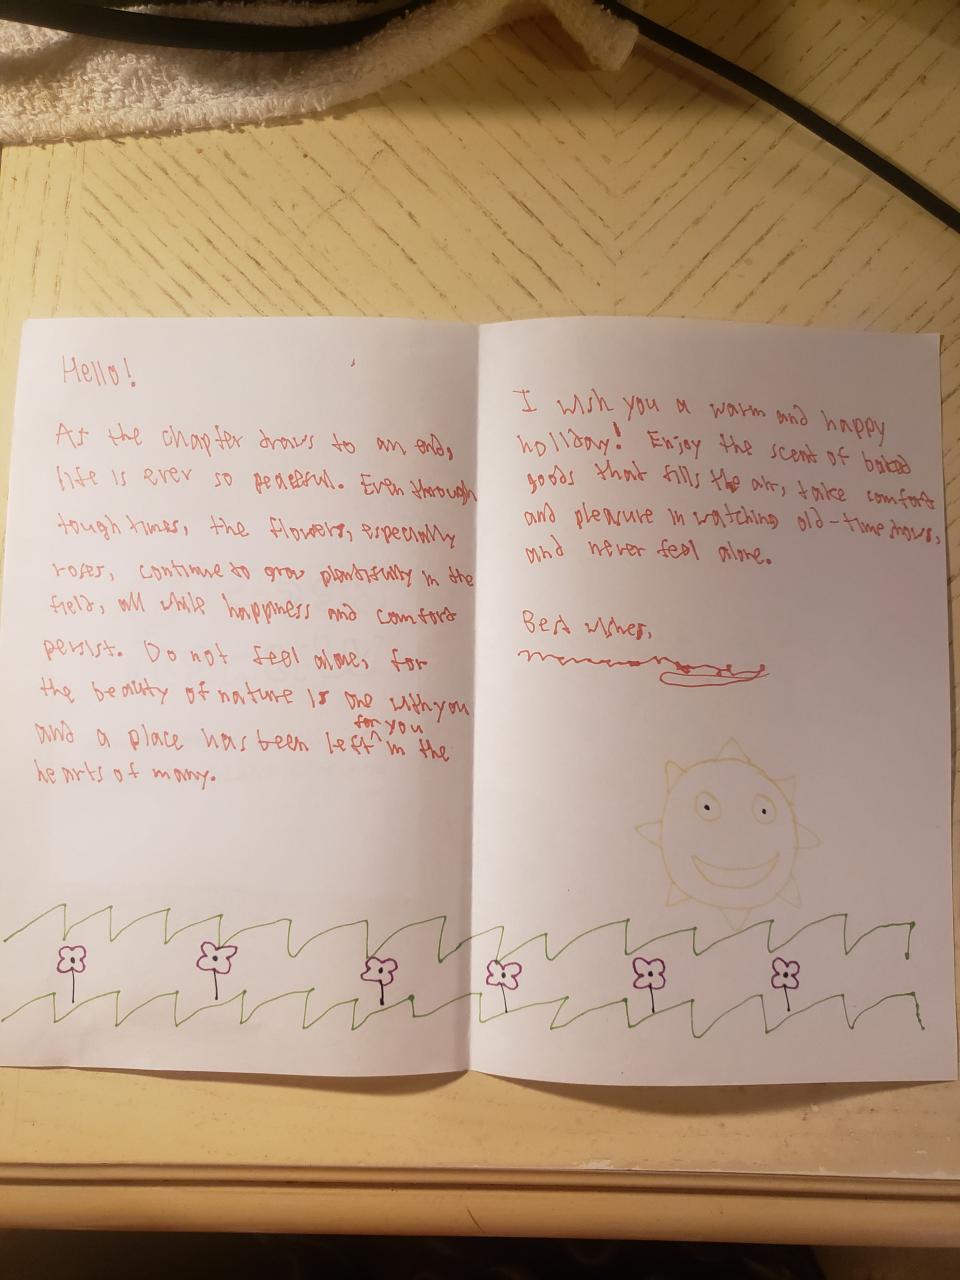 Hello!
As the chapter draws to an end,
life is ever so peaceful. Even through
tough times, the flowers, especially
roses, continue to grow plentifully in the
field, all while happiness and comfort
persist. Do not feel alone, for
the beauty of nature is one with you
and a place has been left for you in the
hearts of many.
I wish you a warm and happy
holiday! Enjoy the scent of baked
goods that fills the air, take comfort
and pleasure in watching old-time shows,
and never feel alone.
Best wishes,